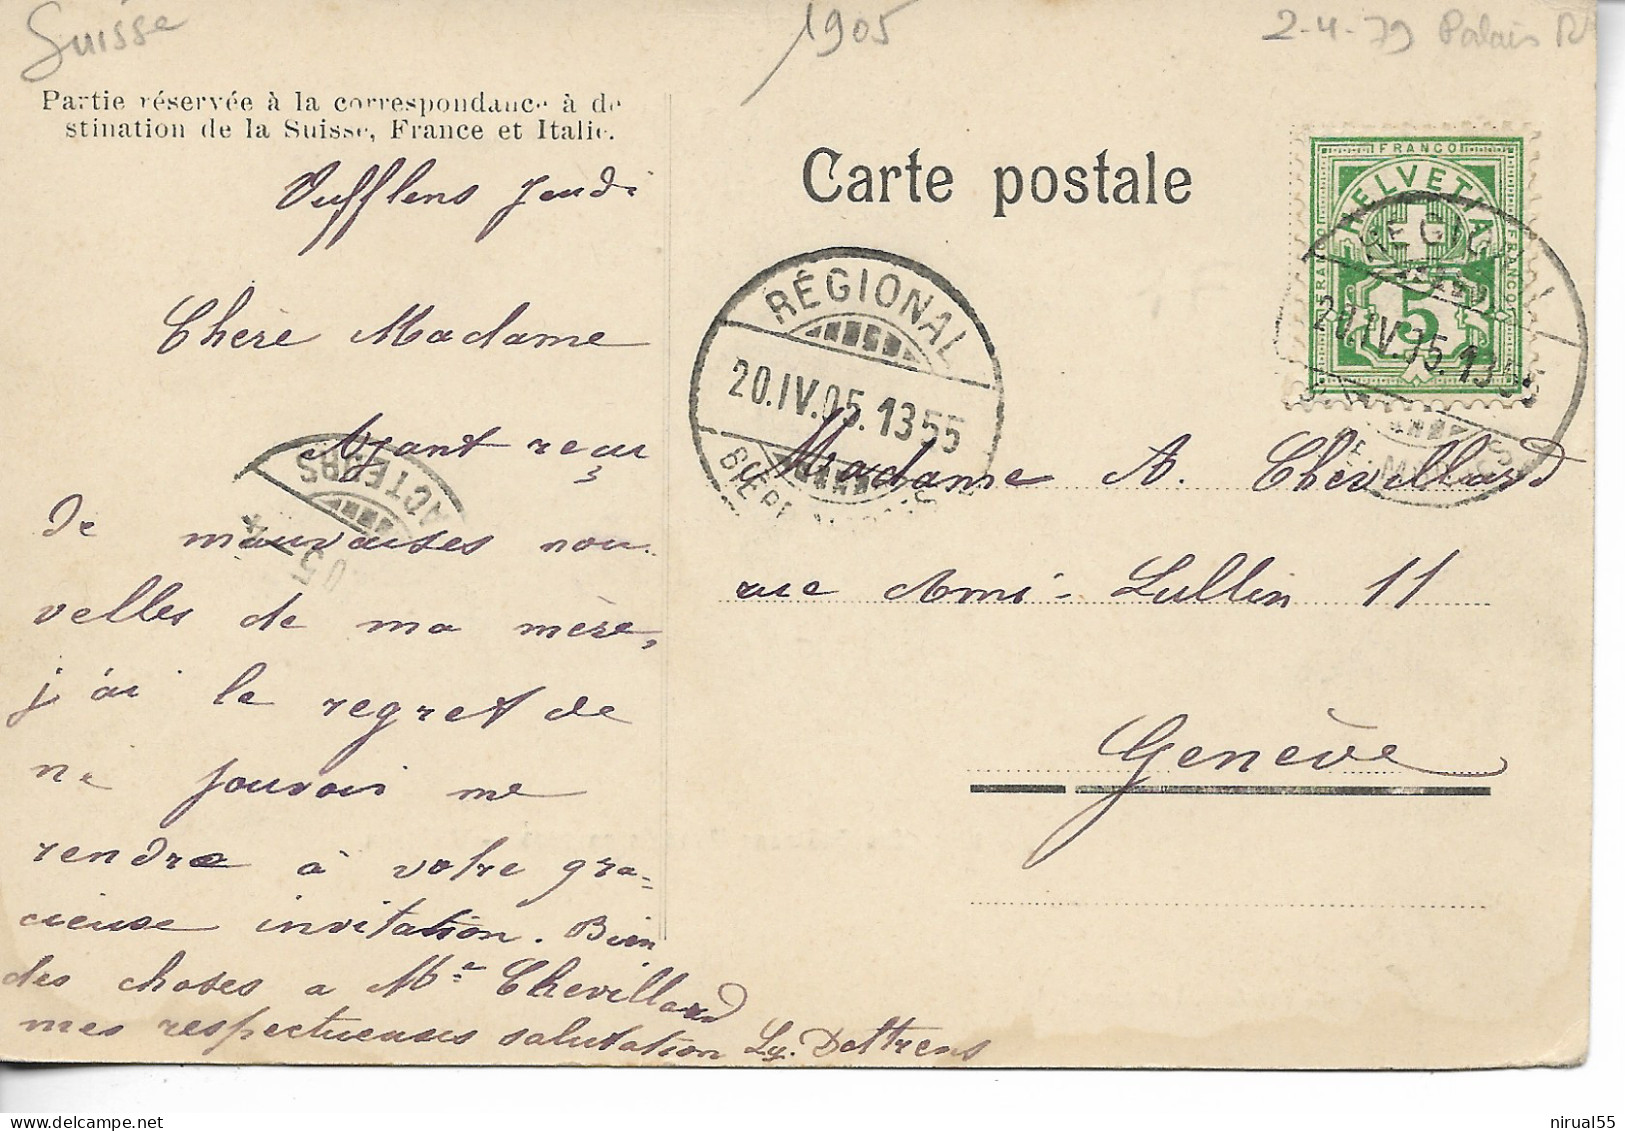 Suisse
1905
2-4-79 Palais R
Partie réservée à la correspondance à de
stination de la Suisse, France et Italie.
Carte postale
FRANCO
HELVETIA
FRANCO
FRANCO
5
RÉGIO
20.IV.05.1355
RÉGIONAL
20.IV.05.1355
BIÈRE
FACTEURS
05
Vufflens jeudi
Chère Madame
Ayant reçu
de mauvaises nou
velles de ma mère,
j'ai le regret de
ne pouvoir me
rendre à votre gra-
cieuse invitation. Bien
des choses a Mr Chevillard
mes respectueuses salutation Ly. Dettrens
Madame A. Chevillard
rue Ami-Lullin 11
Genève
nirual55